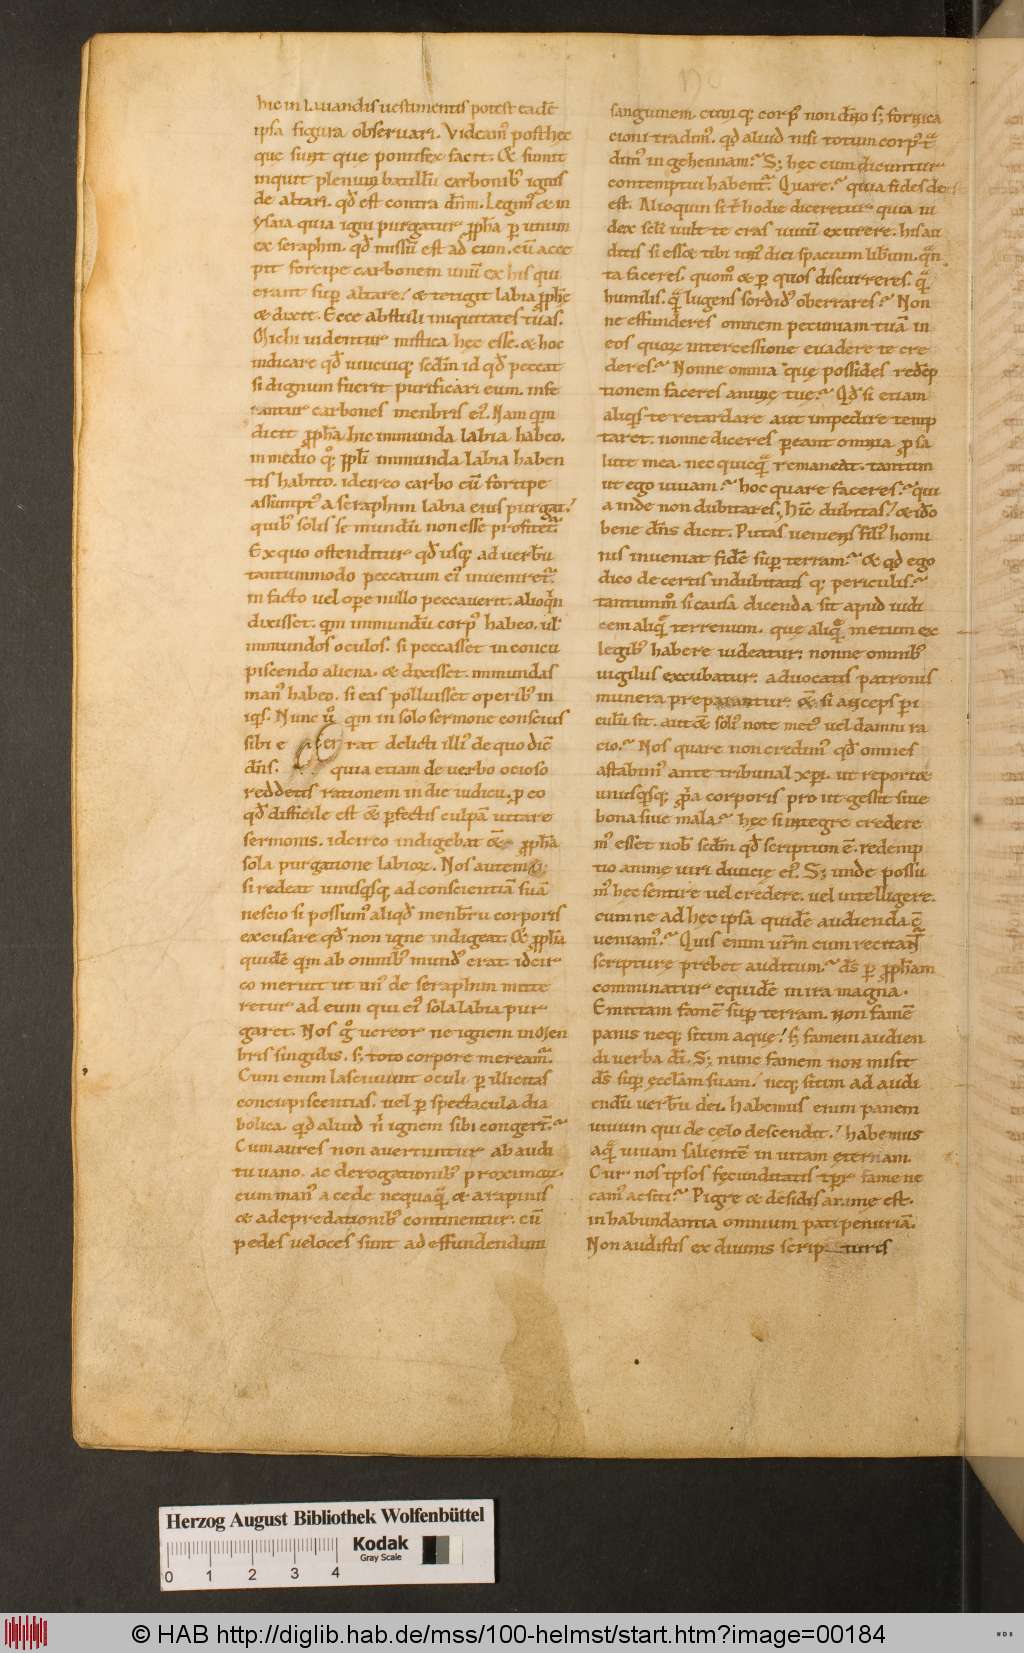 hic in lauandis uestimentis potest eadē
ipsa figura obseruari. Videam᾽ posthec
que sunt que pontifex facit. & sumit
inquit plenum batillū carbonib᾽ ignis
de altari. qđ est contra dn̄m. Legim᾽ & in
ysaia quia igni purgatur ꝓph̄a ꝑ unum
ex seraphin. qđ missū est ad eum. cū acce
pit forcipe carbonem unū ex his qui
erant suꝑ altare. & tetigit labia ꝓph̄e
& dixit. Ecce abstuli iniquitates tuas.
Michi uidentur mistica hec esse. & hoc
indicare qđ unicuiq; scd̄m id qđ peccat
si dignum fuerit purificari eum. infe
rantur carbones menbris ei᾽. Nam qm̄
dicit ꝓph̄a hic inmunda labia habeo.
in medio q̊; ppl̄i inmunda labia haben
tis habito. idcirco carbo cū forcipe
assumpt᾽ a seraphin labia eius purgat.
quib᾽ solis se mundū non esse profitet᷒.
Ex quo ostenditur qđ usq; ad uerbū
tantummodo peccatum ei᾽ inueniret᷒.
in facto uel oꝑe nullo peccauerit. alioq̇n
dixisset. qm̄ inmundū corp᾽ habeo. ul̄
inmundos oculos. si peccasset in concu
piscendo aliena. & dixisset. inmundas
man᾽ habeo. si eas polluisset operib᾽ in
iq̇s. Nunc ů qm̄ in solo sermone conscius
sibi e rat delicti illi᾽ de quo dic̄
dn̄s. quia etiam de uerbo ocioso
reddetis rationem in die iudicii. ꝑ eo
qđ difficile est &iam ꝑfectis culpā uitare
sermonis. idcirco indigebat ꝓph̄a
sola purgatione labioꝝ. Nos autem
si redeat unusq̇sq; ad conscientiā suā
nescio si possum᾽ aliqđ menbrū corporis
excusare qđ non igne indigeat. & ꝓph̄a
quidē qm̄ ab omnib᾽ mund᾽ erat. idcir
co meruit ut un᾽ de seraphin mitte
retur ad eum qui ei᾽ sola labia pur
garet. Nos g̊ uereor ne ignem in men
bris singulis. s; toto corpore mereamur.
Cum enim lasciuiunt oculi ꝑ illicitas
concupiscentias. uel ꝑ spectacula dia
bolica. quid aliud n̄ ignem sibi congerī.
Cum aures non auertuntur ab audi
tu uano. ac derogationib᾽ proximoꝝ.
cum man᾽ a cede nequaq̄ & a rapinis
& a depredationib᾽ continentur. cū
pedes ueloces sunt ad effundendum
sanguinem. cumq; corp᾽ non dn̄o s; fornica
cioni tradim᾽. qđ aliud nisi totum corp᾽ t᷒
dim᾽ in gehennam. S; hec cum dicuntur
contemptui habent᷒. Quare. quia fides de
est. Alioquin si t᷒ hodie diceretur quia iu
dex scl̄i uult te cras uiuū exurere. his au
ditis si esset tibi uni᾽ diei spacium libūm. q̄n
ta faceres. quom̊ & ꝑ quos discurreres. q̄
humilis. q̄ lugens sordid᾽ oberrares. Non
ne effunderes omnem pecuniam tuā in
eos quoꝝ intercessione euadere te cre
deres. Nonne omnia que possides redēp
tionem faceres anime tue. Qđ si etiam
aliq̇s te retardare aut impedire temp
taret. nonne diceres ꝑeant omnia ꝓ sa
lute mea. nec quicq̄ remaneat. tantum
ut ego uiuam. hoc quare faceres. qui
a inde non dubitares. hic dubitas. & idō
bene dn̄s dicit. Putas ueniens fili᾽ homi
nis inueniat fidē suꝑ terram. & quid ego
dico de certis indubitatis q; periculis.
tantumm̊ si causa dicenda sit apud iudi
cem aliq̄ terrenum. que aliq̄ metum ex
legib᾽ habere uideatur. nonne omnib᾽
uigiliis excubatur. aduocatis patronis
munera preparantur. &iam si anceps ꝑi
culū sit. aut &iam soli᾽ note met᾽ uel damni ra
cio. Nos quare non credim᾽ qđ omnes
astabim᾽ ante tribunal xp̄i. ut reportet
unusq̇sq; ꝓp̄a corporis prout gessit siue
bona siue mala. hec si integre credere
m᾽ esset nob᾽ scd̄m qđ scriptum ē. redemp
tio anime uiri diuicie ei᾽. S; unde possu
m᾽ hec sentire uel credere. uel intelligere.
cum ne ad hec ipsa quidē audienda c̄
ueniam᾽. Quis enim ur̄m cum recitant᷒
scripture prebet auditum. ds̄ ꝑ ꝓph̄am
comminatur equidē in ira magna.
Emittam famē suꝑ terram. non famē
panis neq; sitim aque. s; famem audien
di uerba di. S; nunc famem non misit
ds̄ suꝑ eccl̄am suam. neq; sitim ad audi
endū uerbū dei. habemus enim panem
uiuum qui de celo descendit. habemus
aq̄ uiuam salientē in uitam eternam.
Cur nos ipsos fecunditatis tp̄r fame ne
cam᾽ ac siti. Pigre & desidis anime est.
in habundantia omnium pati penuriā.
Non audistis ex diuinis scrip turis
Herzog August Bibliothek Wolfenbüttel
Kodak
Gray Scale
0 1 2 3 4
© HAB http://diglib.hab.de/mss/100-helmst/start.htm?image=00184